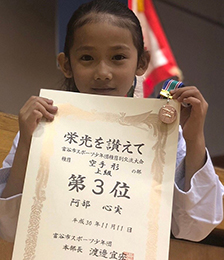 栄光を讃えて
富谷市スポーツ少年団種目別交流大会
種目 空手 形 の部
上級
第3位
阿部 心実
平成30年11月11日
富谷市スポーツ少年団
本部長 渡邊宜宏